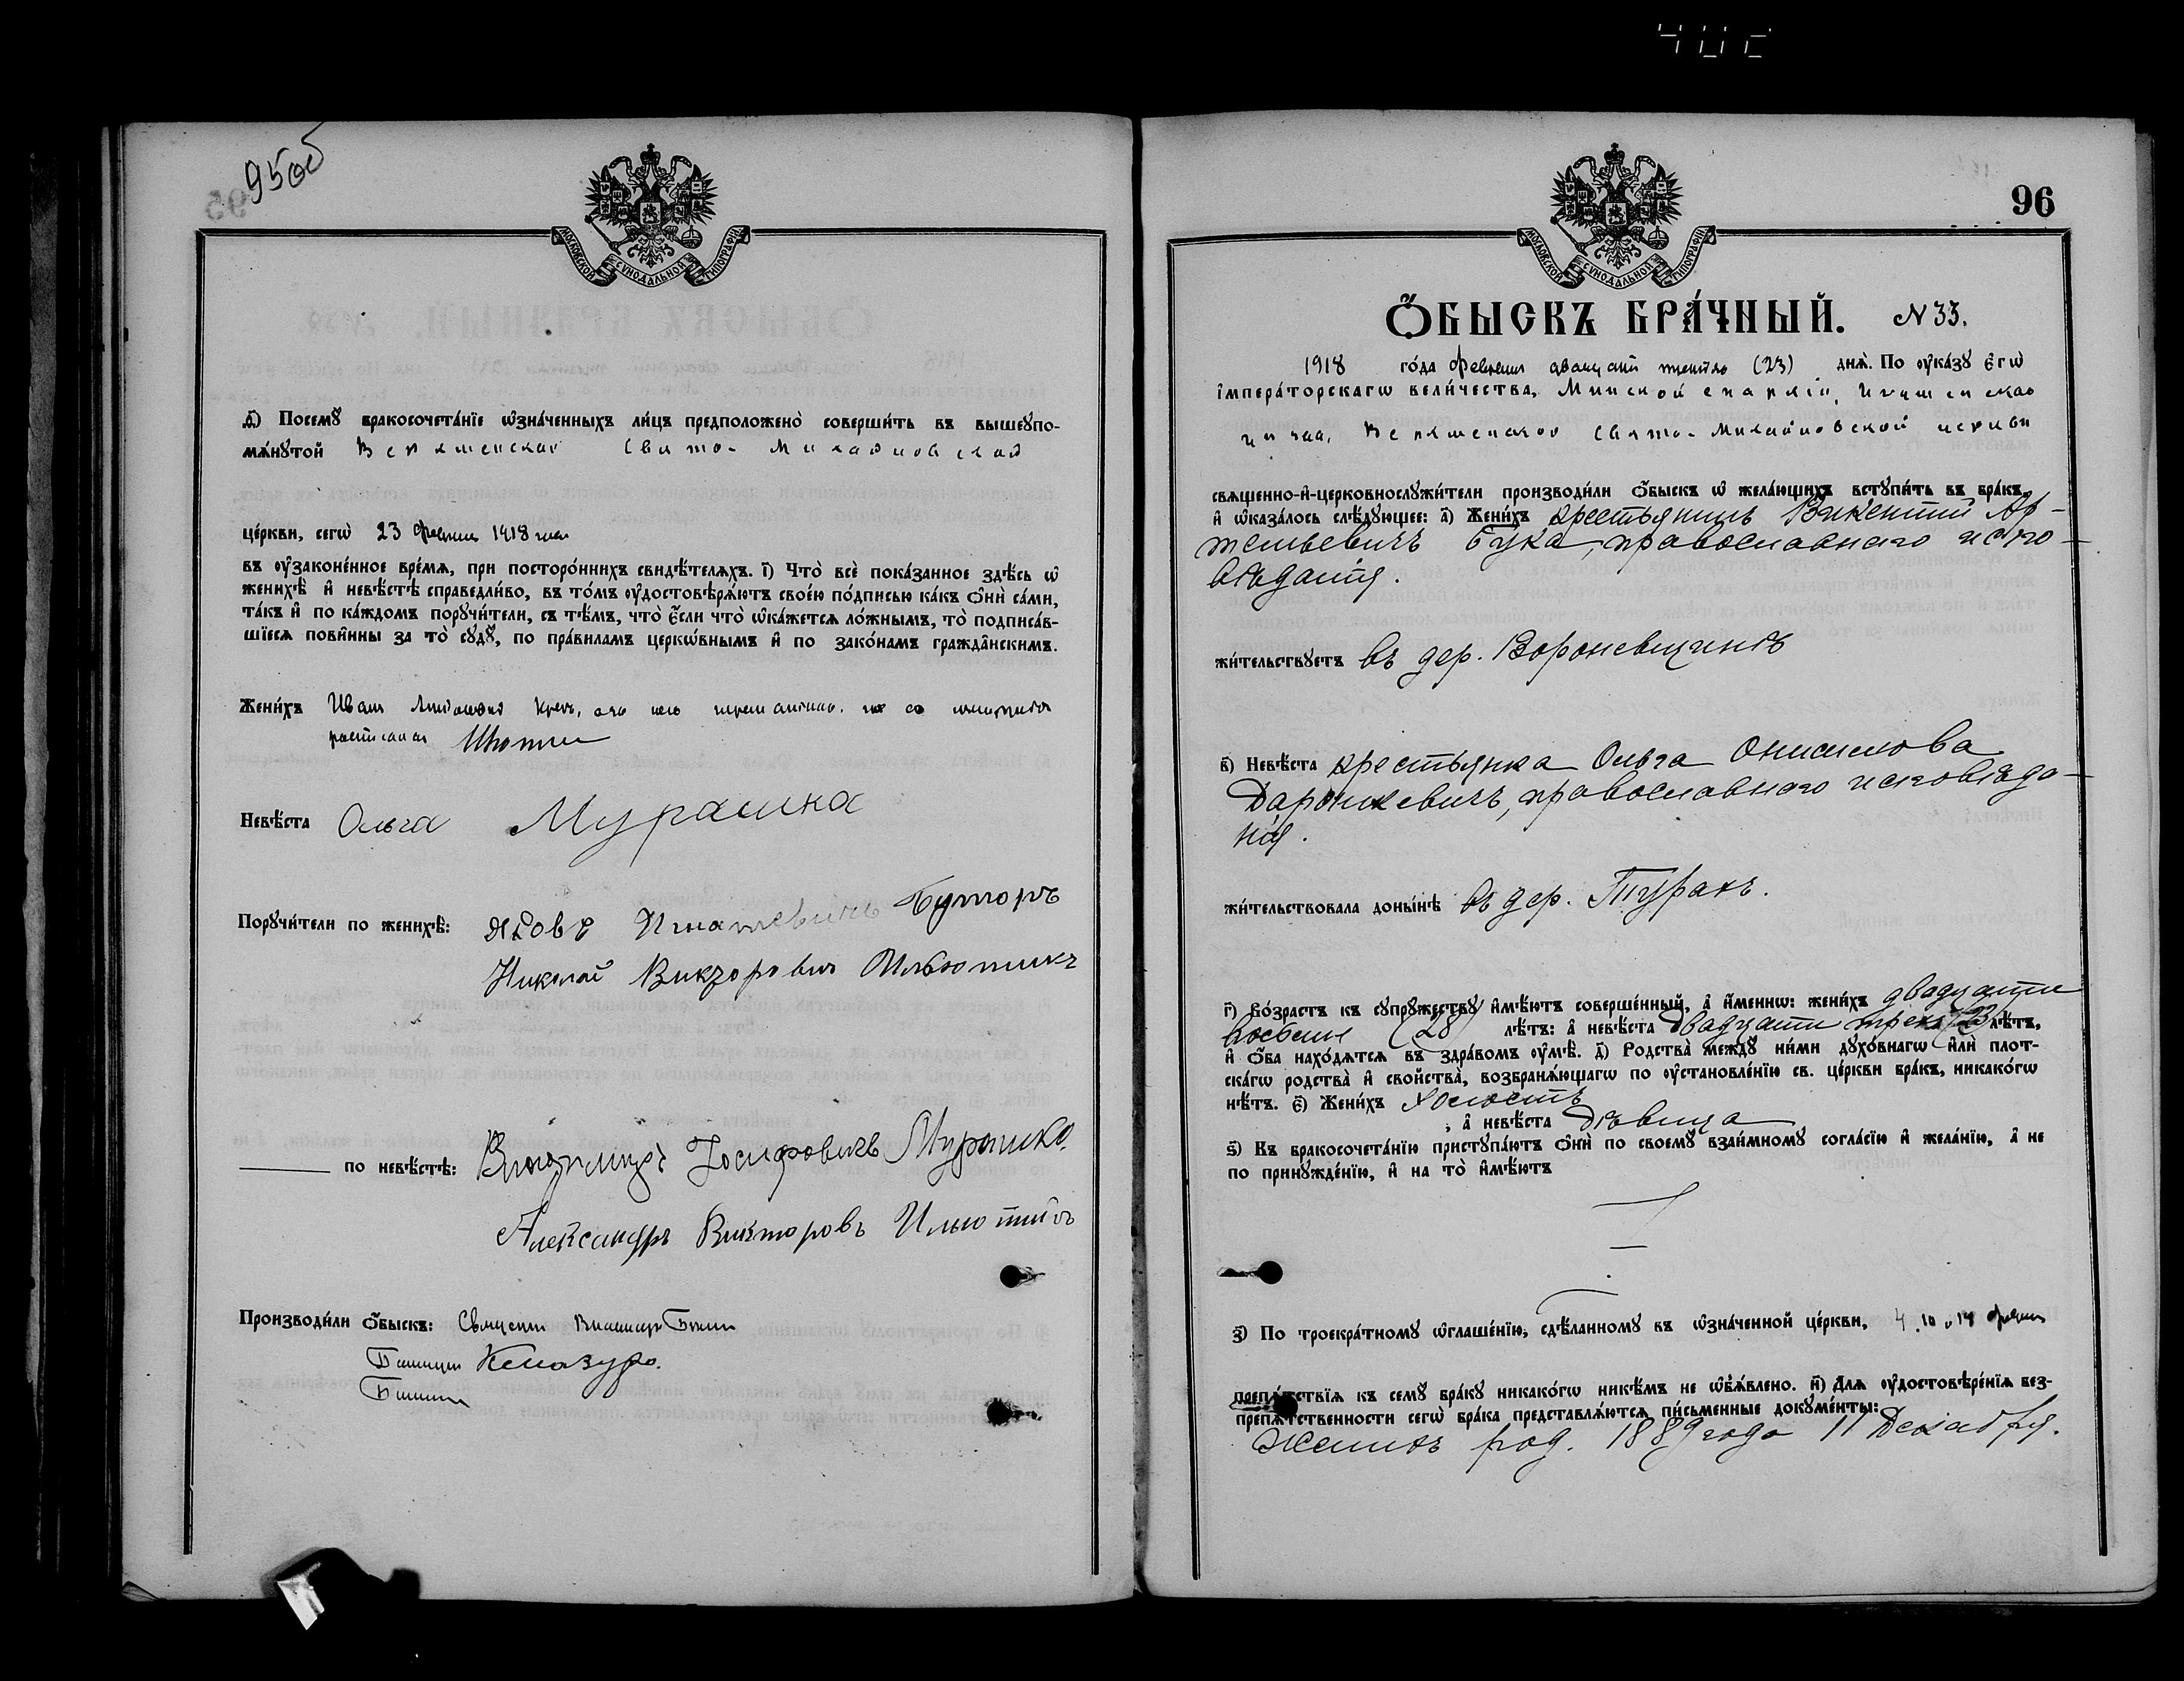 402
95об
МОСКОВСКОЙ СѴНОДАЛЬНОЙ ТИПОГРАФІИ
ѳ҃) Посемꙋ бракосочета́нїе ѡ҆зна́ченныхъ ли́цъ предположено̀ соверши́ть въ вышеꙋпо-
мѧ́нꙋтой Верхменской Свято-Михайловской
це́ркви, сегѡ̀ 23 февраля 1918 года
въ ᲂу҆законе́нное вре́мѧ, при посторо́ннихъ свидѣ́телѧхъ. і҃) Что̀ всѐ пока́занное здѣ́сь ѡ҆
женихѣ̀ и҆ невѣ́стѣ справедли́во, въ то́мъ ᲂу҆достовѣрѧ́ютъ свое́ю по́дписью ка́къ ѻ҆нѝ са́ми,
та́къ и҆ по ка́ждомъ порꙋчи́тели, съ тѣ́мъ, что̀ є҆́сли что̀ ѡ҆ка́жетсѧ ло́жнымъ, то̀ подписа́в-
шїесѧ пови́нны за то̀ сꙋдꙋ̀, по пра́виламъ церкѡ́внымъ и҆ по зако́намъ гражда̂нскимъ.
Жени́хъ Иванъ
Невѣ́ста Ольга Мурашка
Порꙋчи́тели по женихѣ̀: Яковъ Игнатьевичъ Буторъ
Николай Викторовичъ Ильютикъ
по невѣ́стѣ: Владимиръ Іосифовичъ Мурашко.
Александръ Викторовъ Ильютикъ
Производи́ли ѻ҆́быскъ: Священникъ Владимиръ
96
МОСКОВСКОЙ СѴНОДАЛЬНОЙ ТИПОГРАФІИ
Ѻ҆́БЫСКЪ БРА́ЧНЫЙ. N 33.
1918 го́да февраля двадцать третьяго (23) днѧ̀. По ᲂу҆ка́зꙋ є҆гѡ̀
і҆мпера́торскагѡ вели́чества, Минской епархіи, Игуменскаго
уѣзда, Верхменской Свято-Михайловской церкви
свѧщенно-и҆-церковнослꙋжи́тели производи́ли ѻ҆́быскъ ѡ҆ жела́ющихъ встꙋпи́ть въ бра́къ,
и҆ ѡ҆каза́лось слѣ́дꙋющее: а҃) Жени́хъ крестьянинъ Викентій Ар-
темьевичъ Бука, православнаго испо-
вѣданія.
жи́тельствꙋетъ въ дер. Вороневщинѣ
в҃) Невѣ́ста крестьянка Ольга Онисимова
Даронкевичъ, православнаго исповѣда-
нія.
жи́тельствовала доны́нѣ въ дер. Турахъ.
г҃) Во́зрастъ къ сꙋпрꙋ́жествꙋ и҆мѣ́ютъ соверше́нный, а҆ и҆́меннѡ: жени́хъ двадцати
восьми (28) лѣ́тъ: а҆ невѣ́ста двадцати трехъ (23) лѣ́тъ,
и҆ ѻ҆́ба нахо́дѧтсѧ въ здра́вомъ ᲂу҆мѣ̀. д҃) Родства̀ междꙋ̀ ни́ми дꙋхо́внагѡ и҆лѝ плот-
ска́гѡ родства̀ и҆ свойства̀, возбранѧ́ющагѡ по ᲂу҆становле́нїю св. це́ркви бра́къ, никако́гѡ
нѣ́тъ. є҃) Жени́хъ холостъ
; а҆ невѣ́ста дѣвица
ѕ҃) Къ бракосочета́нїю пристꙋпа́ютъ ѻ҆нѝ по своемꙋ̀ взаи́мномꙋ согла́сїю и҆ жела́нїю, а҆ не
по принꙋжде́нїю, и҆ на то̀ и҆мѣ́ютъ
з҃) По троекра́тномꙋ ѡ҆глаше́нїю, сдѣ́ланномꙋ въ ѡ҆зна́ченной це́ркви, 4, 10 и 19 февраля
препѧ́тствїѧ къ семꙋ̀ бра́кꙋ никако́гѡ никѣ́мъ не ѡ҆б̾ѧ́влено. и҃) Длѧ ᲂу҆достовѣре́нїѧ без-
препѧ́тственности сегѡ̀ бра́ка представлѧ́ютсѧ пи́сьменные докꙋме́нты:
Женихъ род. 1889 года 11 Декабря.